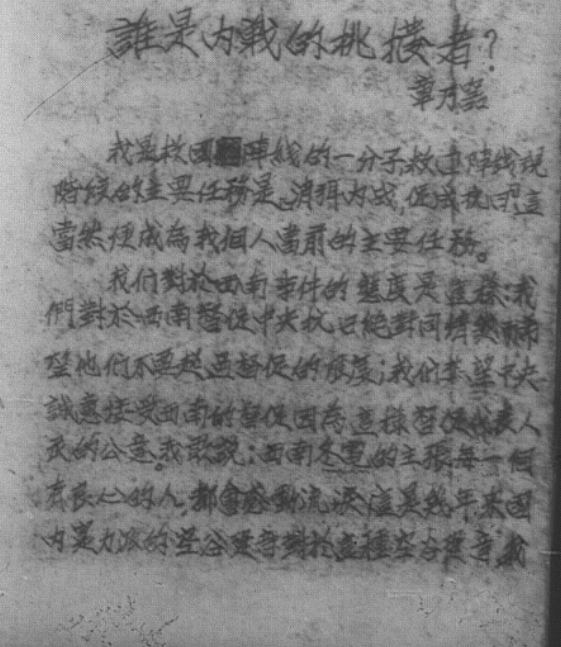 誰是内戰的挑撥者？
章乃器
我是救國陣線的一分子，救亡陣线現
階段的主要任務是消弭内战，促成抗日，這
當然便成為我個人當前的主要任務。
我们對於西南事件的態度是這樣：我
們對於西南督促中央抗日絶對同情，然而希
望他们不要越過督促的限度；我们希望中央
誠意接受西南的督促，因為這樣督促代表人
民的公意。我敢說：西南冬電的主張每一個
有良心的人，都會感動流淚，這是幾年来國
内実力派的空谷足音，對於這種空谷足音，我